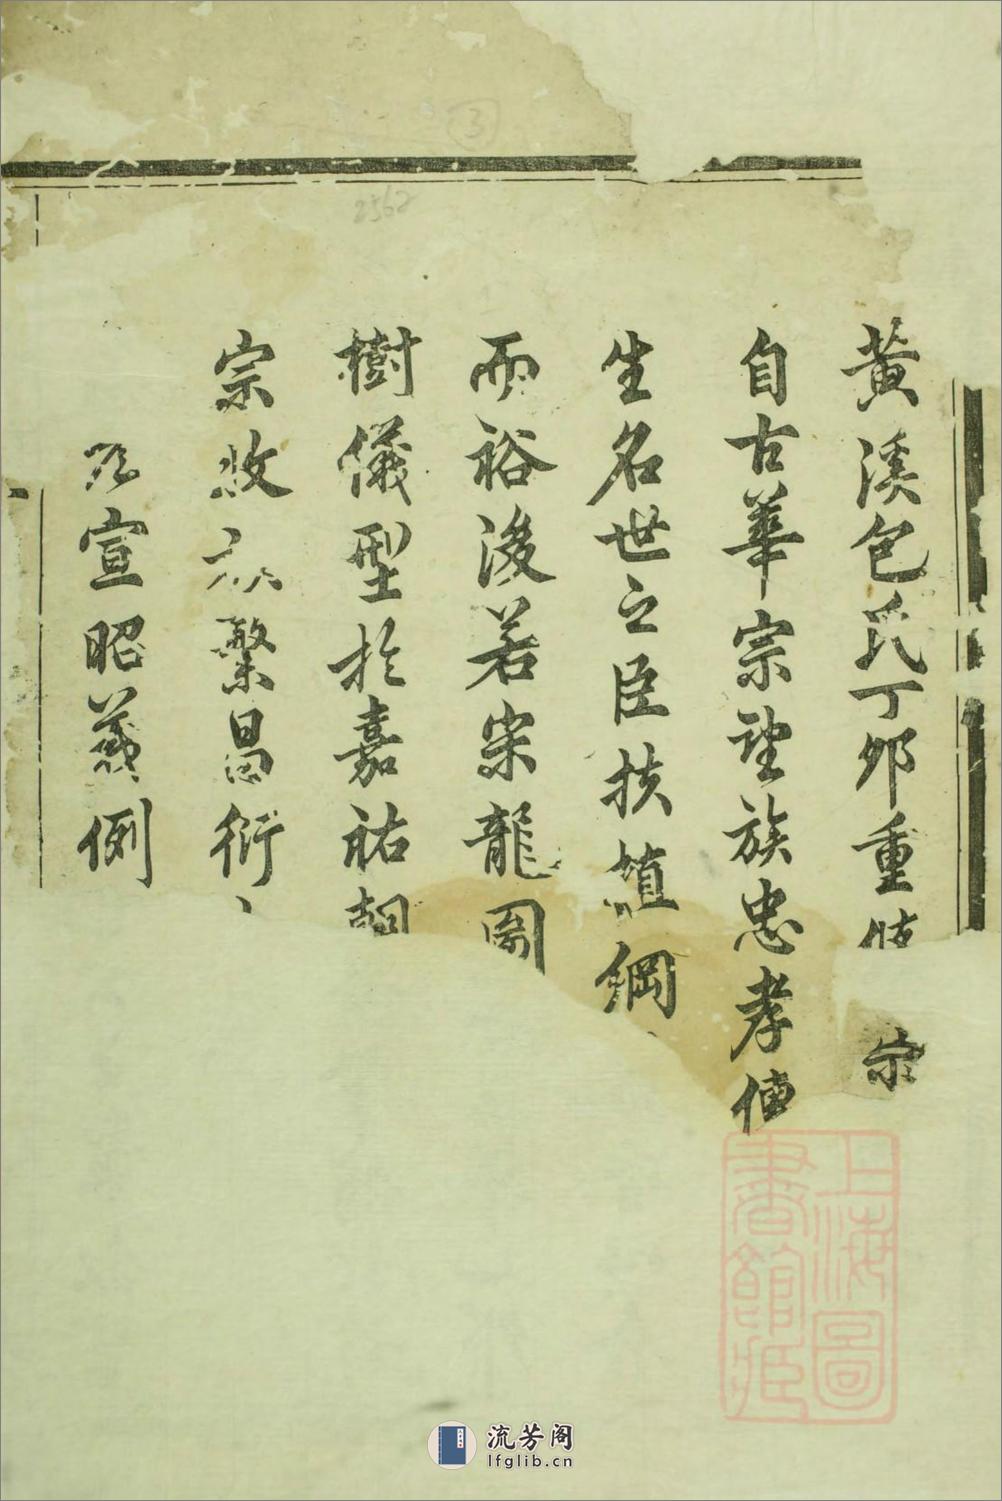 黄溪包氏丁卯重修宗
自古華宗望族忠孝傳
生名世之臣扶植綱
而裕後若宋龍圖
樹儀型於嘉祐朝
宗牧繁昌衍
宣昭義例
上海圖書館藏
3
2562
流芳阁
lfglib.cn